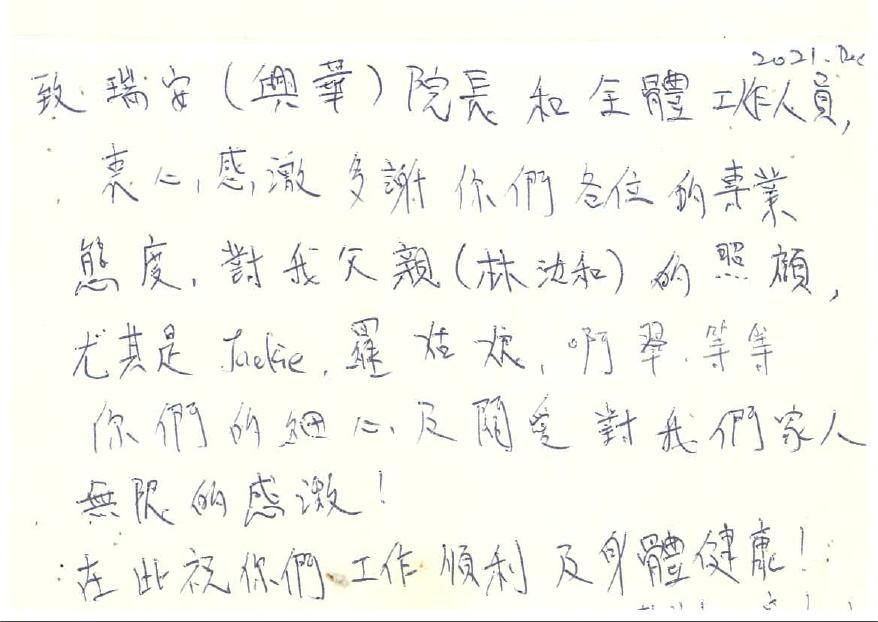 2021. Dec
致 瑞安（興華）院長 和 全體 工作人員,
衷心感激多謝你們各位的專業
態度, 對我父親(林沈和)的照顧,
尤其是 Jackie, 羅姑娘, 啊翠, 等等
你們的細心及關愛對我們家人
無限的感激!
在此祝你們工作順利及身體健康!